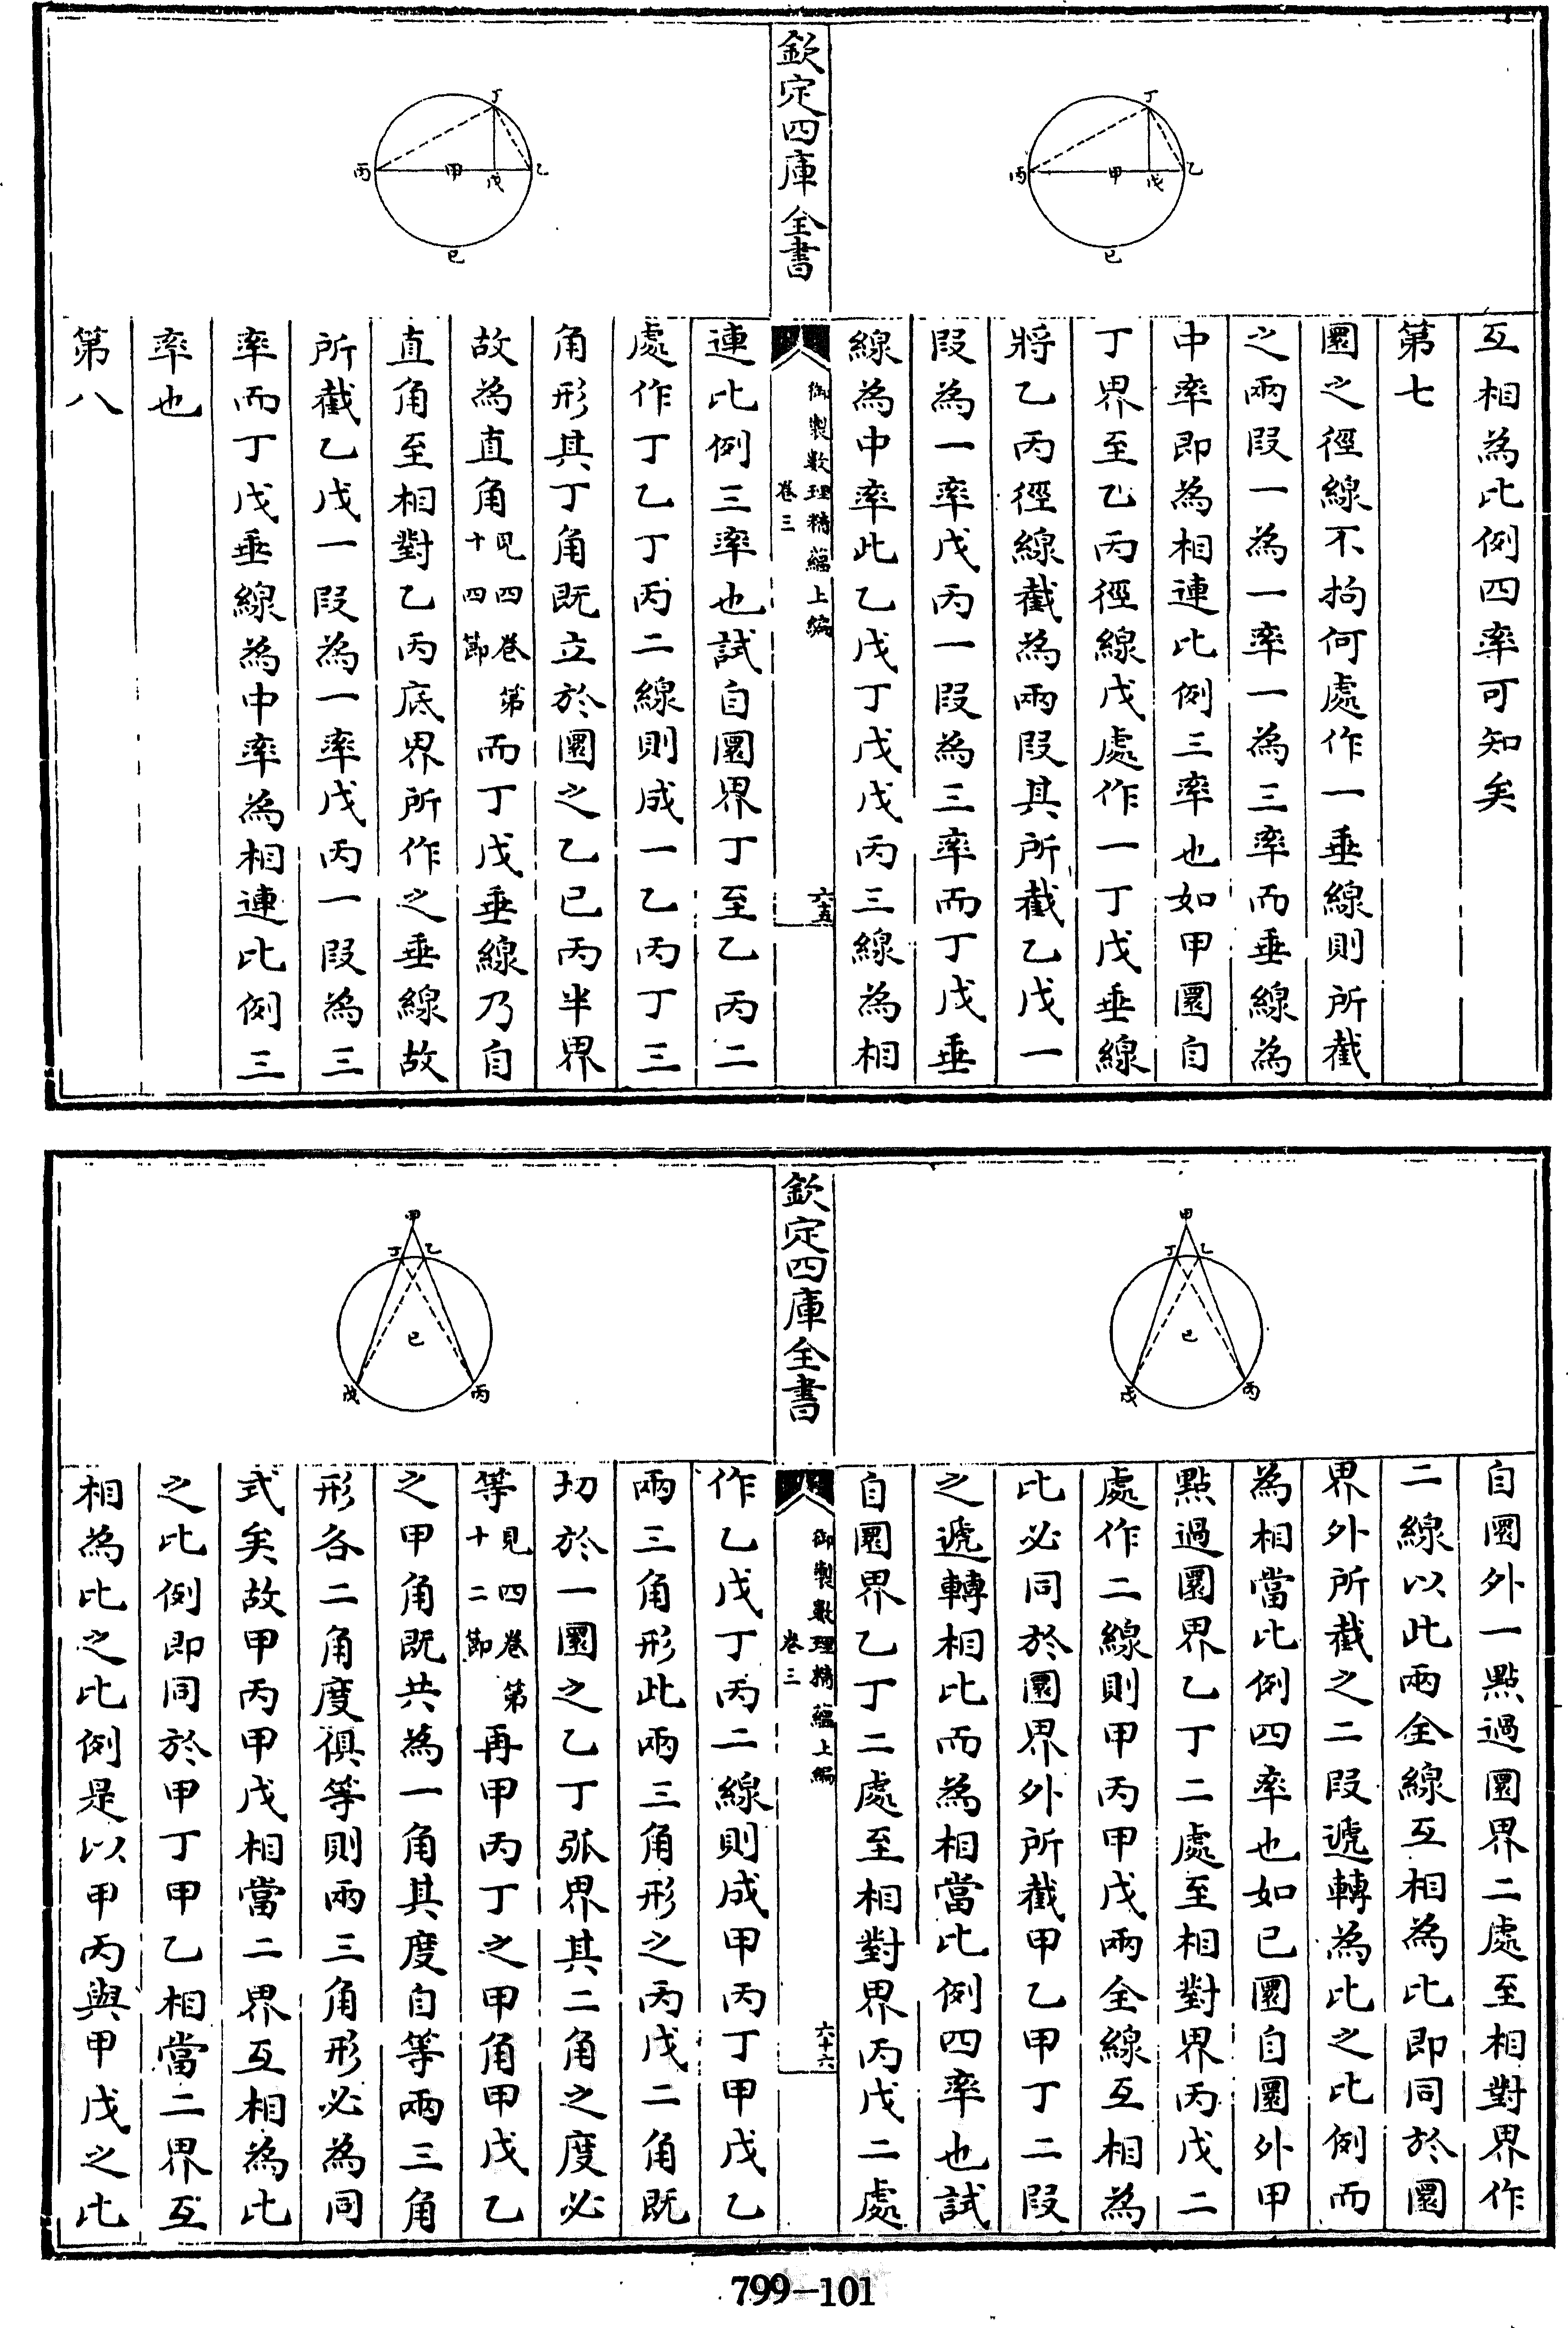 欽定四庫全書
丁
丙
甲
戊
乙
己
互相為比例四率可知矣
第七
圜之徑線不拘何處作一垂線則所截
之兩段一為一率一為三率而垂線為
中率即為相連比例三率也如甲圜自
丁界至乙丙徑線戊處作一丁戊垂線
將乙丙徑線截為兩段其所截乙戊一
段為一率戊丙一段為三率而丁戊垂
線為中率此乙戊丁戊戊丙三線為相
御製數理精蘊上編
卷三
六十五
丁
丙
甲
戊
乙
己
連比例三率也試自圜界丁至乙丙二
處作丁乙丁丙二線則成一乙丙丁三
角形其丁角既立於圜之乙己丙半界
故為直角見四卷第十四節而丁戊垂線乃自
直角至相對乙丙底界所作之垂線故
所截乙戊一段為一率戊丙一段為三
率而丁戊垂線為中率為相連比例三
率也
第八
欽定四庫全書
甲
丁
乙
己
戊
丙
自圜外一點過圜界二處至相對界作
二線以此兩全線互相為比即同於圜
界外所截之二段遞轉為比之比例而
為相當比例四率也如己圜自圜外甲
點過圜界乙丁二處至相對界丙戊二
處作二線則甲丙甲戊兩全線互相為
比必同於圜界外所截甲乙甲丁二段
之遞轉相比而為相當比例四率也試
自圜界乙丁二處至相對界丙戊二處
御製數理精蘊上編
卷三
六十六
甲
丁
乙
己
戊
丙
作乙戊丁丙二線則成甲丙丁甲戊乙
兩三角形此兩三角形之丙戊二角既
切於一圜之乙丁弧界其二角之度必
等見四卷第十二節再甲丙丁之甲角甲戊乙
之甲角既共為一角其度自等兩三角
形各二角度俱等則兩三角形必為同
式矣故甲丙甲戊相當二界互相為比
之比例即同於甲丁甲乙相當二界互
相為比之比例是以甲丙與甲戊之比
799-101